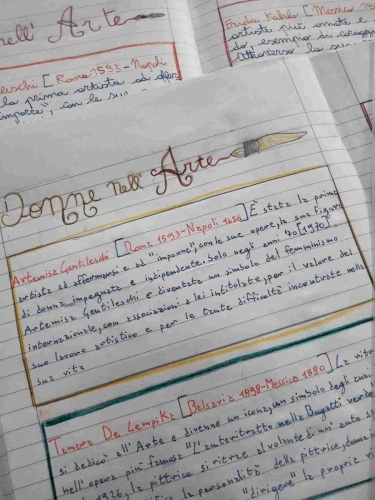 nell' Arte
leschi [Roma 1593-Napoli
la prima artista ad affer
imporre", con le sue
Frida Kahlo [Messico 19
artiste più amate e
do, esempio di coraggio
Attraverso la sua
Donne nell' Arte
Artemisia Gentileschi [Roma 1593-Napoli 1656] È stata la prima
artista ad affermarsi e ad "imporre", con le sue opere, la sua figura
di donna impegnata e indipendente. Solo negli anni '70 [1970]
Artemisia Gentileschi è diventata un simbolo del femminismo
internazionale, con associazioni a lei intitolate, per il valore del
suo lavoro artistico e per le tante difficoltà incontrate nella
sua vita
Tamara De Lempika [Balsavia 1898-Messico 1980] La
si dedicò all' Arte e divenne un'icona, un simbolo degli anni
nell'opera più famosa "L'autoritratto nella Bugatti verde
1926, la pittrice si ritrae al volante di un'auto
la personalità della pittrice, donna
"dirigere" la propria vi